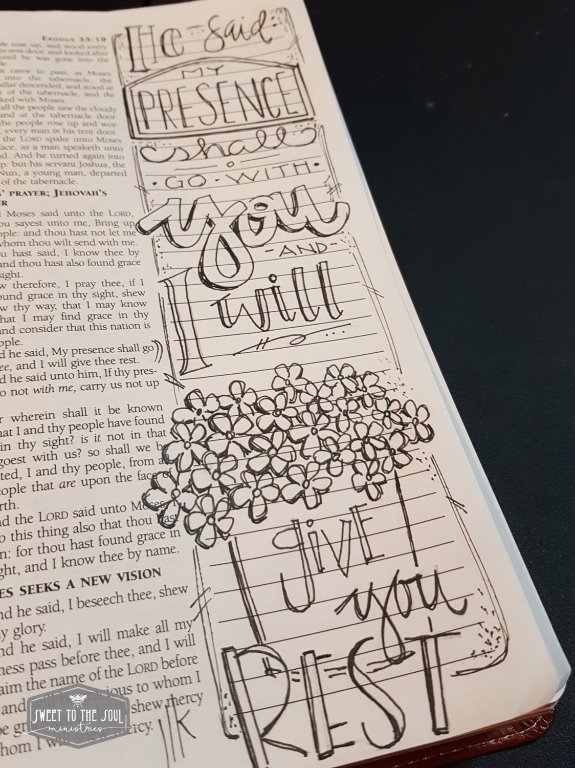 EXODUS 33:19
rose up, and stood every
his tent door, and looked after
until he was gone into the
came to pass, as Moses
into the tabernacle, the
pillar descended, and stood at
of the tabernacle, and the
ked with Moses.
all the people saw the cloudy
and at the tabernacle door
the people rose up and wor-
, every man in his tent door
the LORD spake unto Moses
face, as a man speaketh unto
nd. And he turned again into
p: but his servant Joshua, the
Nun, a young man, departed
of the tabernacle.
S' PRAYER; JEHOVAH'S
ER
Moses said unto the LORD,
ou sayest unto me, Bring up
ople: and thou hast not let me
whom thou wilt send with me.
ou hast said, I know thee by
and thou hast also found grace
sight.
w therefore, I pray thee, if I
ound grace in thy sight, shew
w thy way, that I may know
hat I may find grace in thy
and consider that this nation is
ople.
d he said, My presence shall go
ee, and I will give thee rest.
d he said unto him, If thy pres-
o not with me, carry us not up
r wherein shall it be known
hat I and thy people have found
in thy sight? is it not in that
goest with us? so shall we be
ted, I and thy people, from a
eople that are upon the face of
rth.
nd the LORD said unto Moses,
o this thing also that thou hast
n: for thou hast found grace in
ght, and I know thee by name.
ES SEEKS A NEW VISION
nd he said, I beseech thee, shew
y glory.
nd he said, I will make all my
ness pass before thee, and I will
aim the name of the LORD before
and cious to whom I
be gr shew mercy
hom I w ercy.
He said
MY
PRESENCE
shall
GO WITH
you
AND
I will
GIVE
you
REST
SWEET TO THE SOUL
ministries